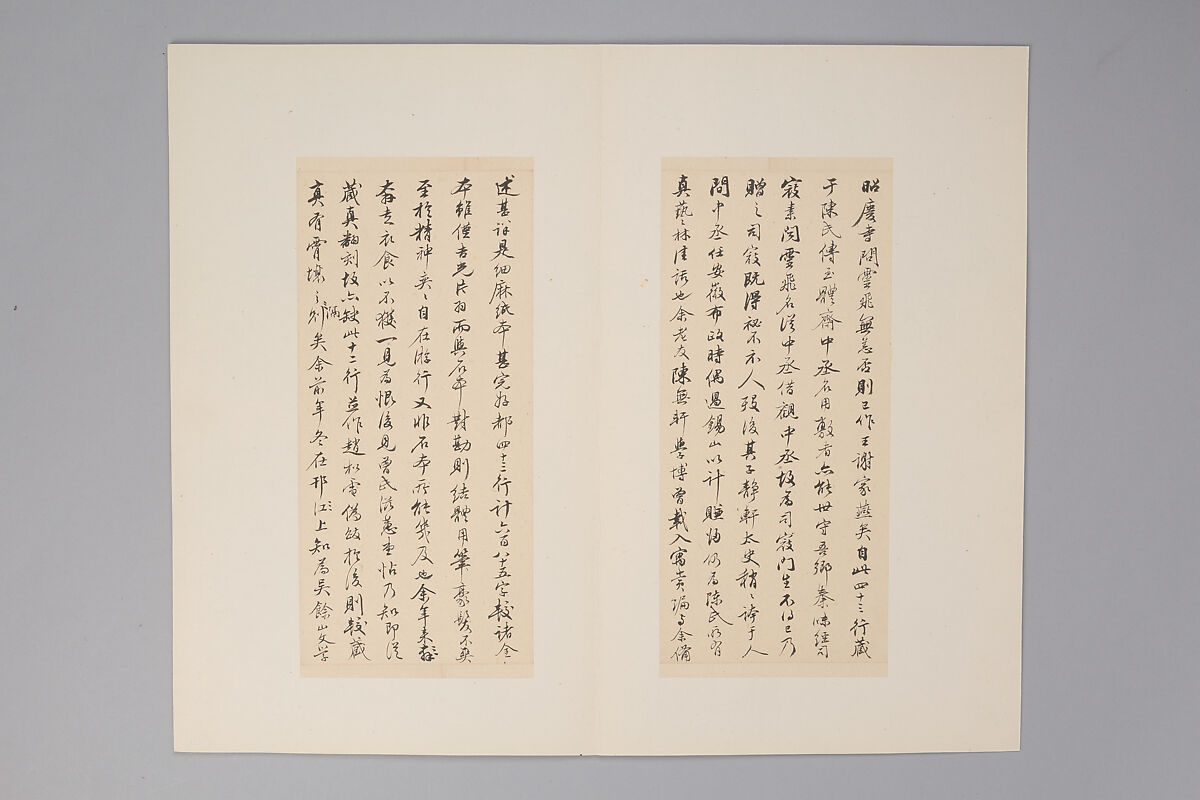 昭慶寺問雲飛無恙否則已作王謝家燕矣自此四十三行藏
于陳氏傳至體齋中丞名用敷者亦能世守吾鄉秦味經司
寇素聞雲飛名從中丞借觀中丞故為司寇門生不得已乃
贈之司寇既得祕不示人歿後其子靜軒太史稍稍誇于人
間中丞任安徽布政時偶過錫山以計賺歸仍為陳氏所有
真藝林佳話也余老友陳無軒學博曾載入寓賞編与余備
述甚詳是細麻紙本甚完好都四十三行計六百八十五字較諸全
本雖僅吉光片羽而與石本對勘則結體用筆豪髮不爽
至於精神奕奕自在游行又非石本所能幾及也余年來
奔走衣食以不獲一見為恨後見曾氏滋蕙堂帖乃知即從
藏真翻刻故亦缺此十二行並作趙松雪偽跋於後則較藏
真有霄壤之別矣余前年冬在邗江上知為吳餘山文學